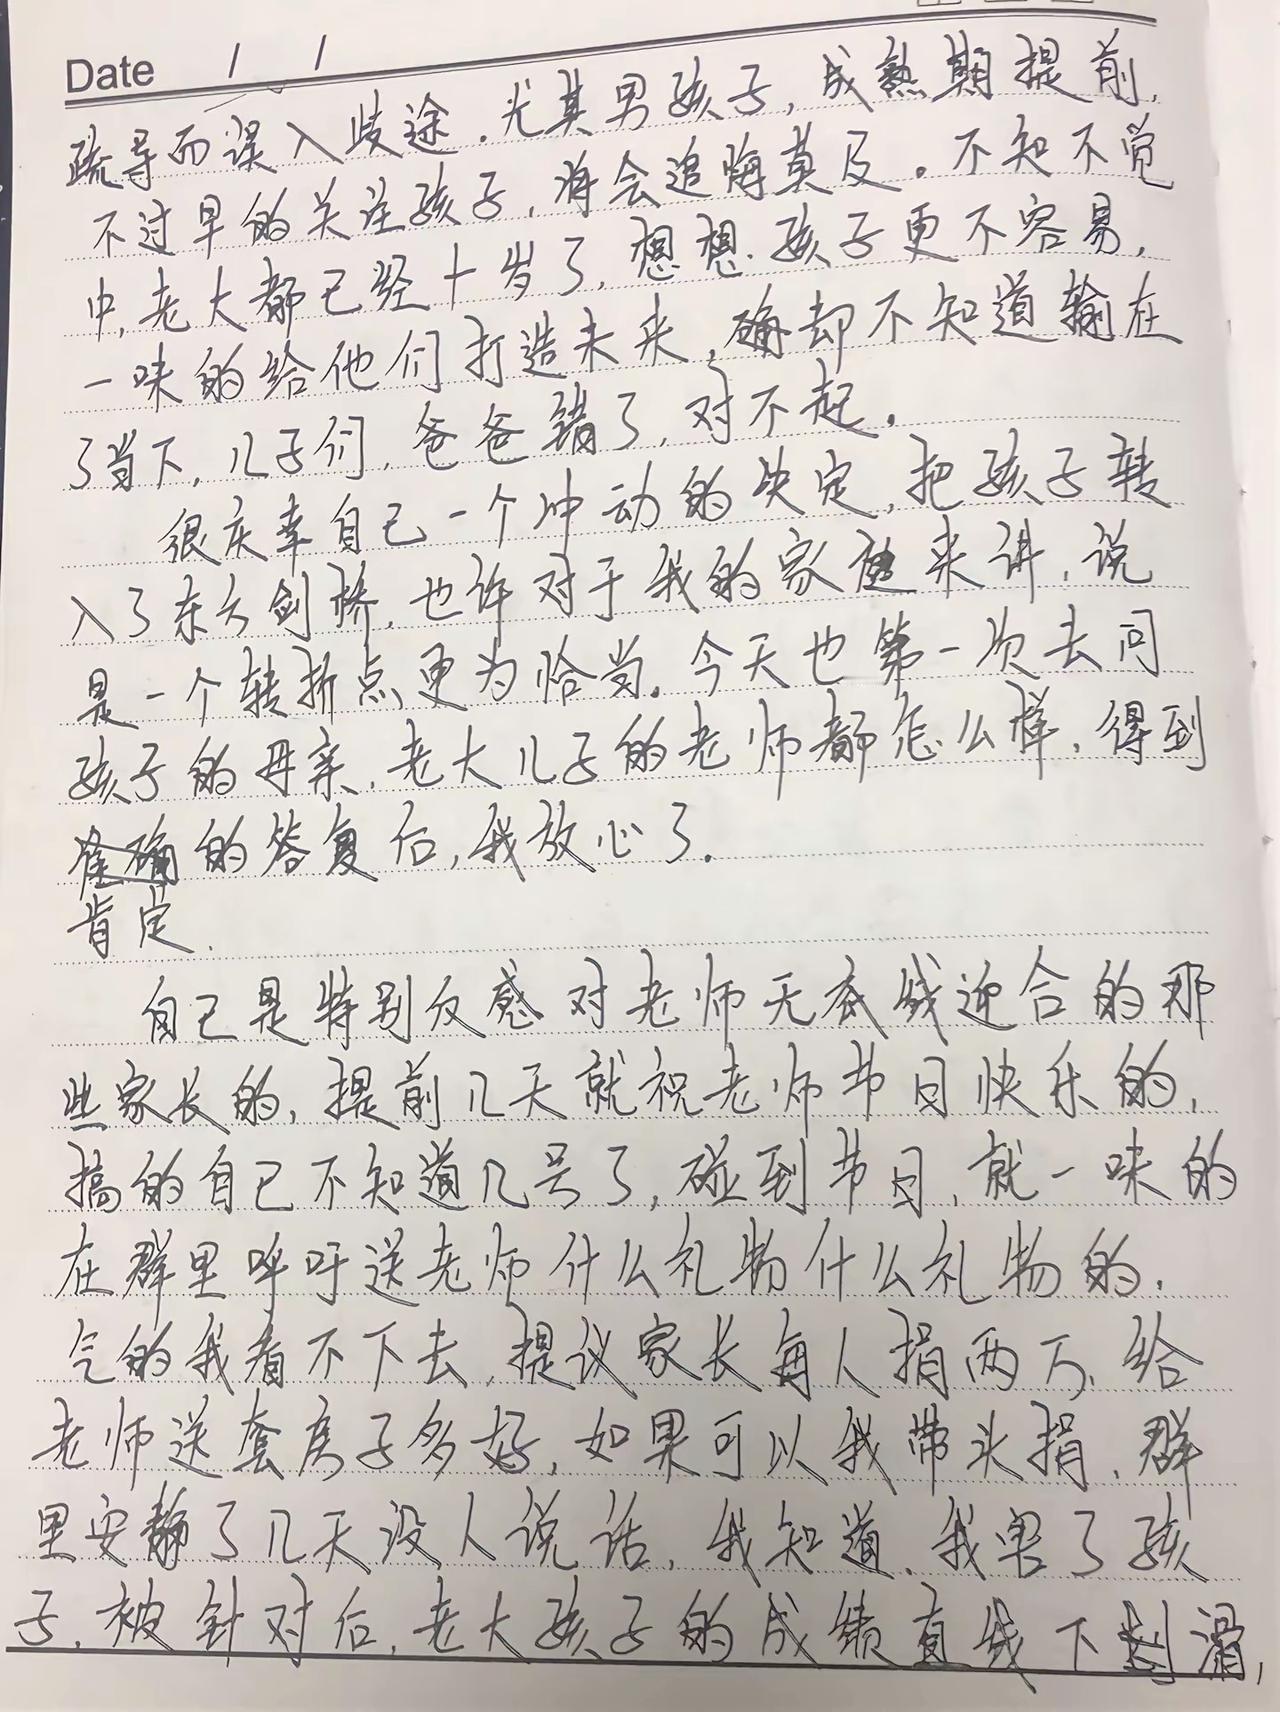 Date / /
疏导而误入歧途.尤其男孩子,成熟期提前,
不过早的关注孩子,将会追悔莫及。不知不觉
中,老大都已经十岁了,想想孩子更不容易,
一味的给他们打造未来,确却不知道输在
了当下,儿子们,爸爸错了,对不起。
很庆幸自己一个冲动的决定,把孩子转
入了东方剑桥,也许对于我的家庭来讲,说
是一个转折点更为恰当。今天也第一次去问
孩子的母亲,老大儿子的老师都怎么样,得到
准确的答复后,我放心了.
肯定.
自己是特别反感对老师无底线迎合的那
些家长的,提前几天就祝老师节日快乐的,
搞的自己不知道几号了,碰到节日,就一味的
在群里呼吁送老师什么礼物什么礼物的,
气的我看不下去,提议家长每人捐两万,给
老师送套房子多好,如果可以我带头捐,群
里安静了几天没人说话,我知道,我害了孩
子,被针对后,老大孩子的成绩直线下滑,